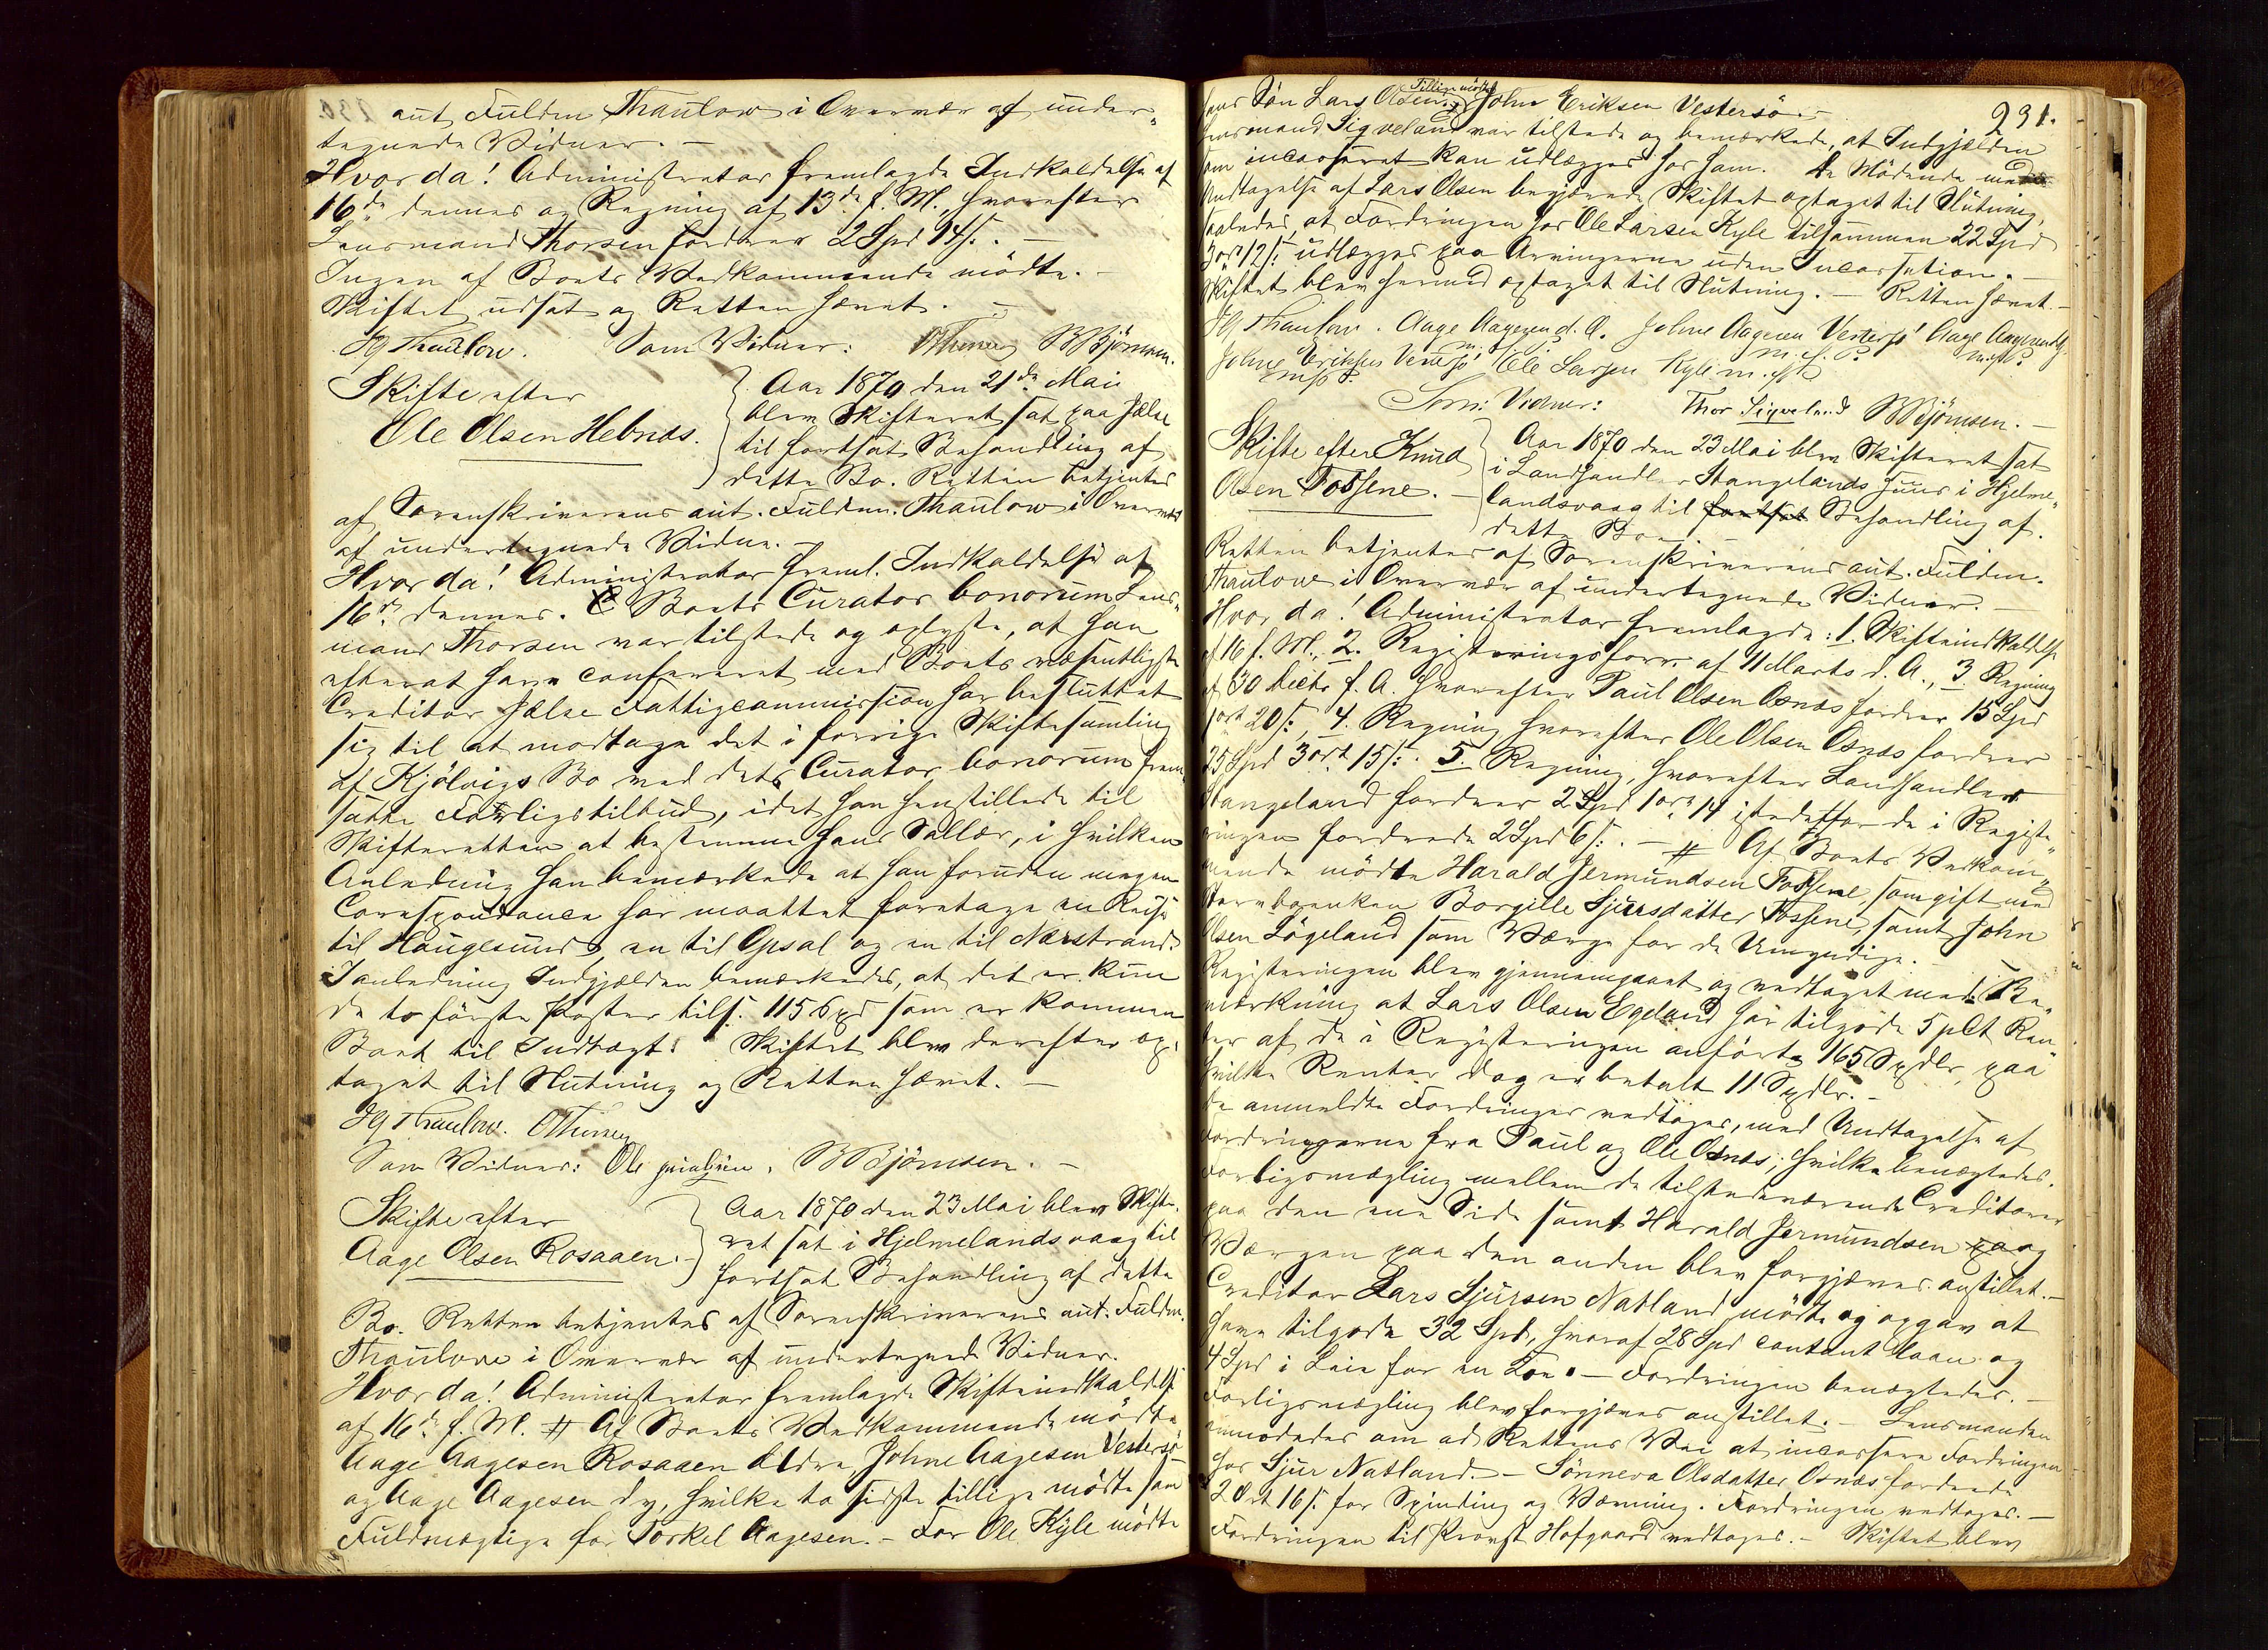 aut Fuldm Thaulow i Overvær af under-
tegnede Vidner. —
Hvor da! Administrator fremlagde Indkaldelse af
16de dennes og Regning af 13de f. M., hvorefter
Lensmand Thorsen fordrer 2 Spd 14 s. —
Ingen af Boets Vedkommende mödte. —
Skiftet udsat og Retten hævet. —
Hg Thaulow. Som Vidner: OThorsen BBjörnsen.
Skifte efter
Ole Olsen Hebnæs.
Aar 1870 den 21de Mai
blev Skifteret sat paa Jælse
til fortsat Behandling af
dette Bo. Retten betjentes
af Sorenskriverens aut. Fuldm. Thaulow i Overvær
af undertegnede Vidne. —
Hvor da! Administrator freml. Indkaldelse af
16de dennes. Boets Curator bonorum Lens-
mand Thorsen var tilstede og oplyste, at han
efterat have confereret med Boets væsentligste
Creditor Jælse Fattigcommission har besluttet
sig til at modtage det i forrige Skiftesamling
af Kjölvigs Bo ved dets Curator bonorum frem-
satte Forligstilbud, idet han henstillede til
Skifteretten at bestemme hans Sallær, i hvilken
Anledning han bemærkede at han foruden megen
Correspondance har maattet foretage en Reise
til Haugesund, en til Opsal og en til Nærstrand.
I anledning Indgjælden bemærkedes, at det er kun
de to förste Poster tils. 115 Spd som er kommen
Boet til Indtægt. Skiftet blev derefter op-
taget til Slutning og Retten hævet. —
Hg Thaulow. OThorsen
Som Vidner: Ole BBjörnsen. —
Skifte efter
Aage Olsen Rosaaen.
Aar 1870 den 23 Mai blev Skifte-
ret sat i Hjelmelandsvaag til
fortsat Behandling af dette
Bo. Retten betjentes af Sorenskriverens aut. Fuldm.
Thaulow i Overvær af undertegnede Vidner.
Hvor da! Administrator fremlagde Skifteindkaldelse
af 16de f. M. # Af Boets Vedkommende mödte
Aage Aagesen Rosaaen ældre, Johne Aagesen Vestersö
og Aage Aagesen d y, hvilke to sidste tillige mödte som
Fuldmægtige for Torkel Aagesen. — For Ole Kyle mödte
231.
hans Sön Lars Olsen. Tillige mödte John Eriksen Vestersö. —
Lensmand Sigveland var tilstede og bemærkede, at Indgjælden
som incasseret kan udlægges hos ham. De Mödende med
Undtagelse af Lars Olsen begjærede Skiftet optaget til Slutning,
saaledes, at Fordringen hos Ole Larsen Kyle tilsammen 22 Spd
3 ort 12 s. udlægges paa Arvingerne uden Incassation. —
Skiftet blev hermed optaget til Slutning. — Retten hævet. —
Hg Thaulow. Aage Aagesen d. Æ. Johne Aagesen Vestersö Aage Aagesen d y
m. f. P. m. f. P.
Johne Eriksen Vestersö Ole Larsen Kyle m. f. P.
m f P.
Som Vidner: Thor Sigveland BBjörnsen. —
Skifte efter Knud
Olsen Fossene. —
Aar 1870 den 23 Mai blev Skifteret sat
i Landhandler Stangelands Huus i Hjelme-
landsvaag til fortsat Behandling af
dette Bo. —
Retten betjentes af Sorenskriverens aut. Fuldm.
Thaulow i Overvær af undertegnede Vidner. —
Hvor da! Administrator fremlagde: 1. Skifteindkaldelse
af 16 f. M., 2. Registreringsforr. af 11 Marts d. A., 3. Regning
af 30 Decbr f. A. hvorefter Paul Olsen Osnæs fordrer 15 Spd
1 ort 20 s., 4. Regning hvorefter Ole Olsen Osnæs fordrer
25 Spd 3 ort 15 s. 5. Regning, hvorefter Landhandler
Stangeland fordrer 2 Spd 1 ort 14 istedetfor de i Registe-
ringen fordrede 2 Spd 6 s. — # Af Boets Vedkom-
mende mödte Harald Jermundsen Fossene, som gift med
Stervboenken Borgille Sjursdatter Fossene, samt John
Olsen Lögeland som Værge for de Umyndige. —
Registeringen blev gjennemgaaet og vedtaget med Be-
mærkning at Lars Olsen Egeland har tilgode 5 pCt Ren-
ter af de i Registeringen anförte 165 Spdlr, paa
hvilke Renter dog er betalt 11 Spdlr. —
De anmeldte Fordringer vedtoges, med Undtagelse af
Fordringerne fra Paul og Ole Osnæs; hvilke benægtedes.
Forligsmægling mellem de tilstedeværende Creditorer
paa den ene Side samt Harald Jermundsen paa og
Værgen paa den anden blev forgjæves anstillet. —
Creditor Lars Sjursen Natland mödte og opgav at
have tilgode 32 Spd, hvoraf 28 Spd contant Laan og
4 Spd i Leie for en Koe. — Fordringen benægtedes. —
Forligsmægling blev forgjæves anstillet. — Lensmanden
anmodedes om ad Rettens Vei at incassere Fordringen
hos Sjur Natland. — Sönneva Olsdatter Osnæs fordrede
2 Ort 16 s. for Spinding og Vævning. Fordringen vedtoges. —
Fordringen til Provst Hofgaard vedtoges. — Skiftet blev